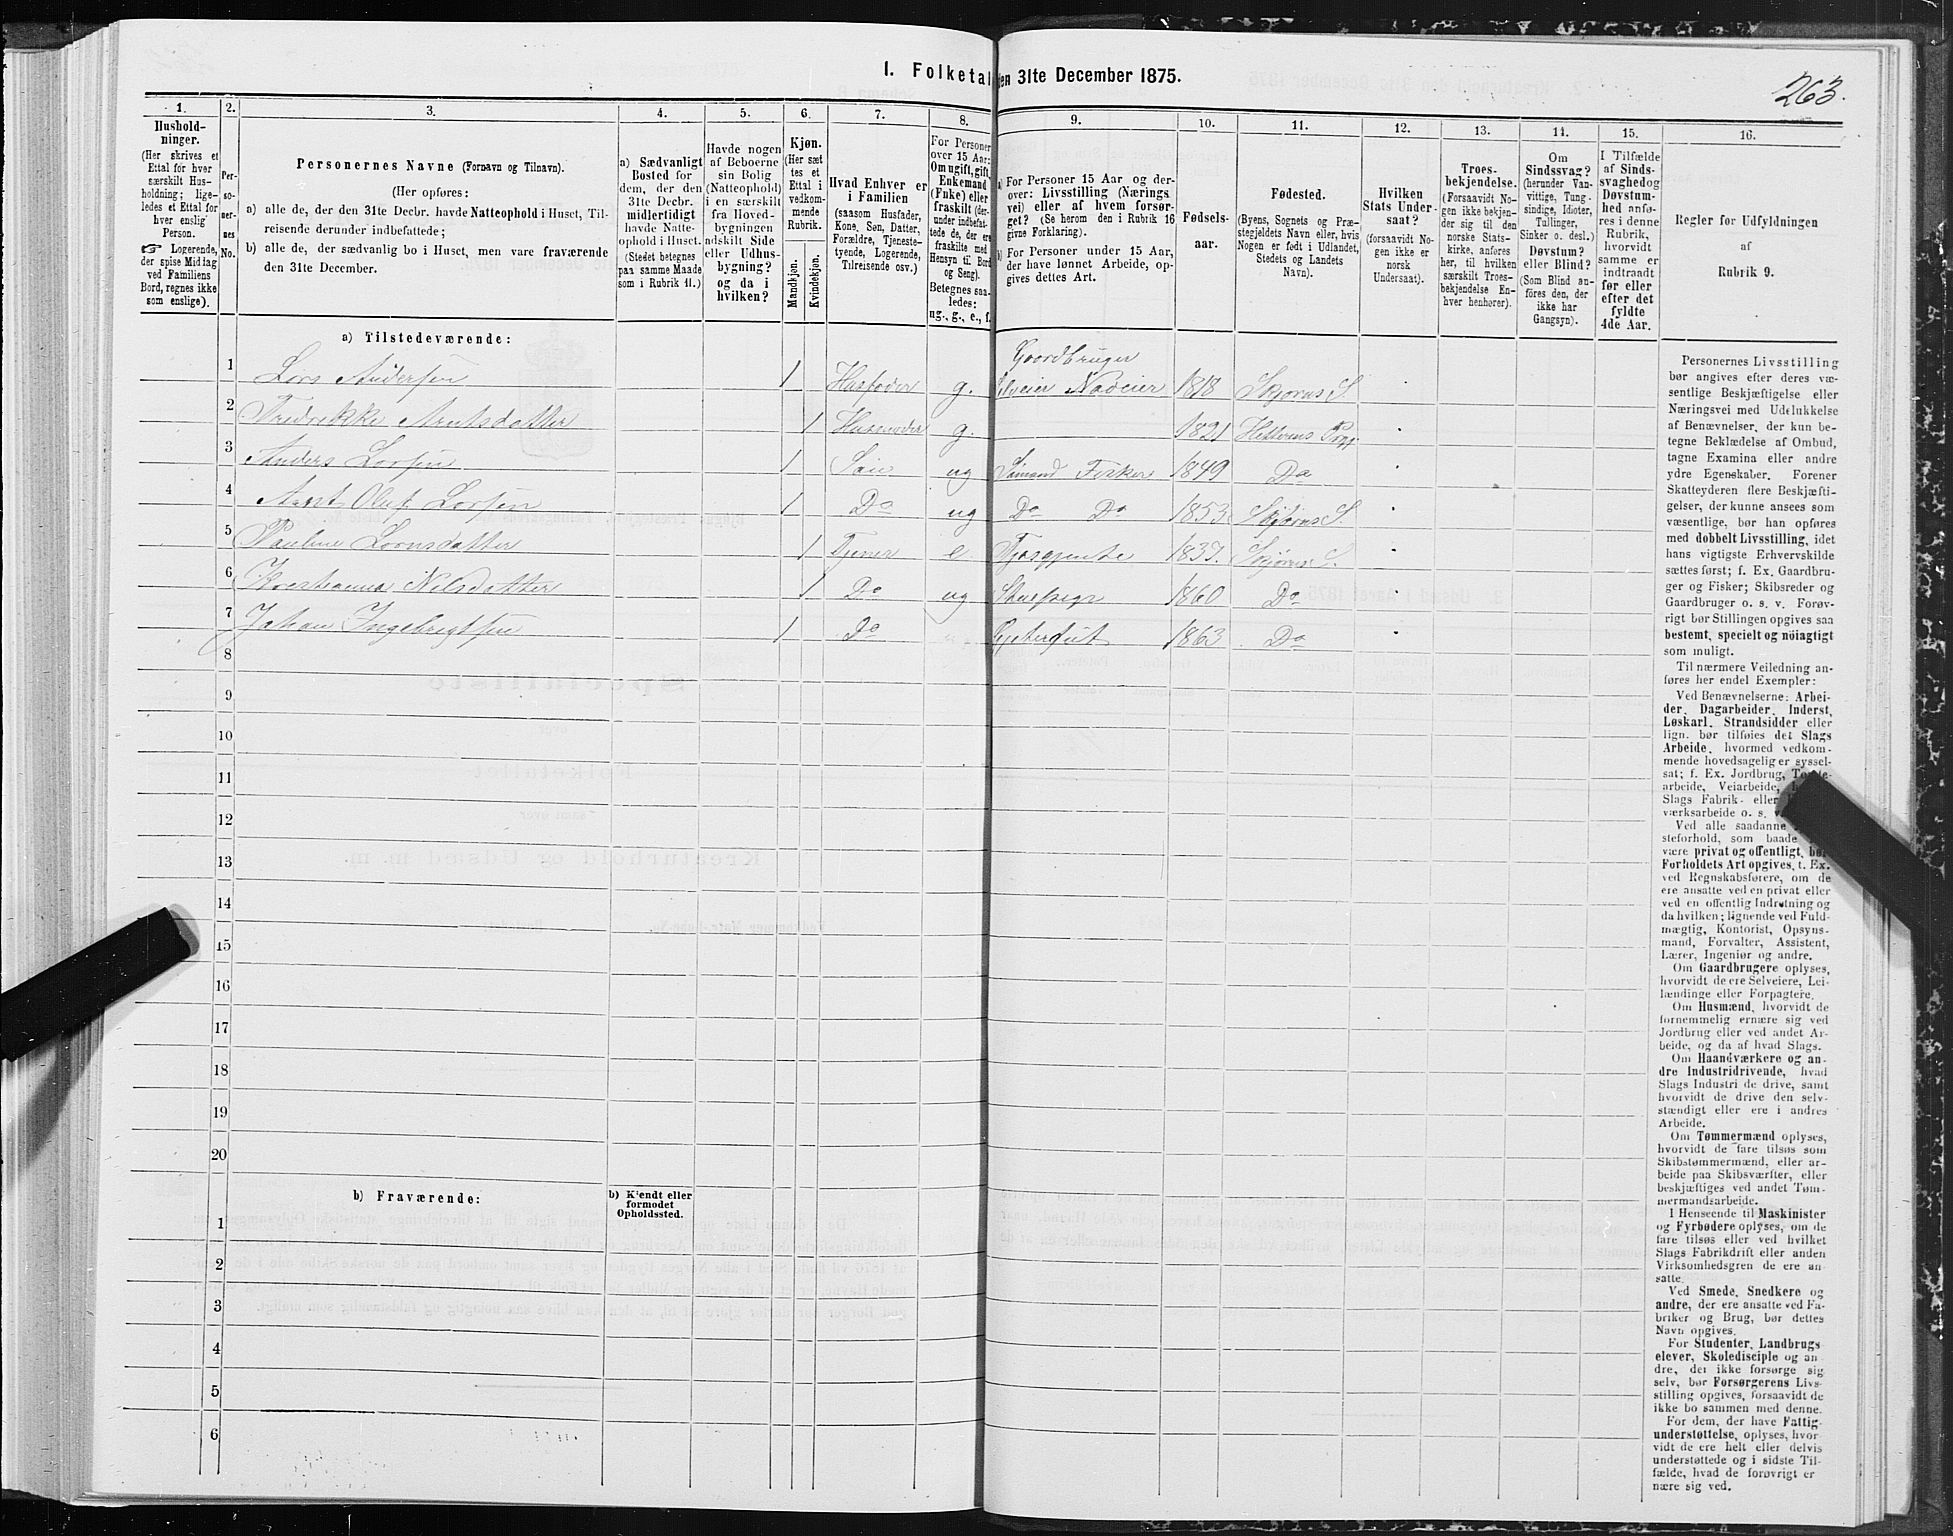 I. Folketal den 31te December 1875.
263.
1.
2.
3.
4.
5.
6.
7.
8.
9.
10.
11.
12.
13.
14.
15.
16.
Hushold-
ninger.
(Her skrives et
Ettal for hver
særskilt Hus-
holdning; lige-
ledes et Ettal for
hver enslig
Person.
☞ Logerende,
der spise Middag
ved Familiens
Bord, regnes ikke
som enslige).
Per-
so-
ner-
nes
No.
Personernes Navne (Fornavn og Tilnavn).
(Her opføres:
a) alle de, der den 31te Decbr. havde Natteophold i Huset, Til-
reisende derunder indbefattede;
b) alle de, der sædvanlig bo i Huset, men vare fraværende
den 31te December.
a) Sædvanligt
Bosted for
dem, der den
31te Decbr.
midlertidigt
havde Natte-
ophold i Huset.
(Stedet betegnes
paa samme Maade
som i Rubrik 11.)
Havde nogen
af Beboerne
sin Bolig
(Natteophold)
i en særskilt
fra Hoved-
bygningen
adskilt Side
eller Udhus-
bygning?
og da i
hvilken?
Kjøn.
(Her sæt
tes et
Ettal i
vedkom-
mende
Rubrik.
Mandkjøn.
Kvindekjøn.
Hvad Enhver er
i Familien
(saasom Husfader,
Kone, Søn, Datter,
Forældre, Tjeneste-
tyende, Logerende,
Tilreisende osv.)
For Personer
over 15 Aar:
Om ugift, gift,
Enkemand
(Enke) eller
fraskilt (der-
under indbefat-
tede de, der ere
fraskilte med
Hensyn til Bord
og Seng).
Betegnes saa-
ledes:
ug., g., e., f.
a) For Personer 15 Aar og der-
over: Livsstilling (Nærings
vei) eller af hvem forsør-
get? (Se herom den i Rubrik 16
givne Forklaring).
b) For Personer under 15 Aar,
der have lønnet Arbeide, op-
gives dettes Art.
Fødsels-
aar.
Fødested.
(Byens, Sognets og Præ-
stegjeldets Navn eller, hvis
Nogen er født i Udlandet,
Stedets og Landets
Navn).
Hvilken
Stats Under-
saat?
(forsaavidt No-
gen ikke er
norsk
Undersaat).
Troes-
bekjendelse.
(Forsaavidt No-
gen ikke bekjen-
der sig til den
norske Stats-
kirke, anføres
her, til hvilken
særskilt Troes-
bekjendelse En-
hver henhører).
Om
Sindssvag?
(herunder Van-
vittige, Tung-
sindige, Idioter,
Tullinger,
Sinker o. desl.)
Døvstum?
eller Blind?
(Som Blind an-
føres den, der
ikke har
Gangsyn).
I Tilfælde
af Sinds-
svaghed og
Døvstum-
hed anfø-
res i denne
Rubrik,
hvorvidt
samme er
indtraadt
før eller
efter det
fyldte
4de Aar.
Regler for Udfyldningen
af
Rubrik 9.
a) Tilstedeværende:
Gaardbruger
1 Lars Andersen 1 Husfader g. Selveier 1818 Skjørns S.
2 Fredrekke Arntsdatter 1 Husmoder g. 1821 Hitterens Prgj
3 Anders Larsen 1 Søn ug Sømand Fisker 1849 Do
4 Arnt Oluf Larsen 1 Do ug Do Do 1853 Skjørns S.
5 Pauline Lornsdatter 1 Tjener e 1837. Skjørns S.
6 Krestianna Nilsdatter 1 Do ug Stuepige 1860 Do
7 Johan Ingebrigtsen 1 Do Gjetergut 1863 Do
8
9
10
11
12
13
14
15
16
17
18
19
20
b) Fraværende:
b) Kjendt eller
formodet
Opholdssted.
1
2
3
4
5
6
Personernes Livsstilling
bør angives efter deres væ-
sentlige Beskjæftigelse eller
Næringsvei med Udelukkelse
af Benævnelser, der kun be-
tegne Beklædelse af Ombud,
tagne Examina eller andre
ydre Egenskaber. Forener
Skatteyderen flere Beskjæfti-
gelser, der kunne ansees som
væsentlige, bør han opføres
med dobbelt Livsstilling, idet
hans vigtigste Erhvervskilde
sættes først; f. Ex. Gaardbru-
ger og Fisker; Skibsreder og
Gaardbruger o. s. v. Forøv-
rigt bør Stillingen opgives saa
bestemt, specielt og nøiagtigt
som muligt.
Til nærmere Veiledning an-
føres her endel Exempler:
Ved Benævnelserne: Arbei-
der, Dagarbeider, Inderst,
Løskarl, Strandsidder eller
lign. bør tilføies det Slags
Arbeide, hvormed vedkom-
mende hovedsagelig er syssel-
sat; f. Ex. Jordbrug, Tomte-
arbeide, Veiarbeide,
Slags Fabrik- eller
værksarbeide o. s. v.
Ved alle saadanne
steforhold, som baade
være privat og offentligt, bør
Forholdets Art opgives, t. Ex.
ved Regnskabsførere, om de
ere ansatte ved en privat eller
ved en offentlig Indretning og
da hvilken; lignende ved Fuld-
mægtig, Kontorist, Opsyns-
mand, Forvalter, Assistent,
Lærer, Ingeniør og andre.
Om Gaardbrugere oplyses,
hvorvidt de ere Selveiere, Lei-
lændinge eller Forpagtere.
Om Husmænd, hvorvidt de
fornemmelig ernære sig ved
Jordbrug eller ved andet Ar-
beide, og da af hvad Slags.
Om Haandværkere og an-
dre Industridrivende, hvad
Slags Industri de drive, samt
hvorvidt de drive den selv-
stændigt eller ere i andres
Arbeide.
Om Tømmermænd oplyses,
hvorvidt de fare tilsøs som
Skibstømmermænd, eller ar-
beide paa Skibsværfter, eller
beskjæftiges ved andet Tøm-
mermandsarbeide.
I Henseende til Maskinister
og Fyrbødere oplyses, om de
fare tilsøs eller ved hvilket
Slags Fabrikdrift eller anden
Virksomhedsgren de ere an-
satte.
Ved Smede, Snedkere og
andre, der ere ansatte ved Fa-
briker og Brug, bør dettes
Navn opgives.
For Studenter, Landbrugs
elever, Skoledisciple og an
dre, der ikke forsørge sig
selv, bør Forsørgerens Livs-
stilling opgives, forsaavidt de
ikke bo sammen med denne.
For dem, der have Fattig-
understøttelse, oplyses, hvor-
vidt de ere helt eller delvis
understøttede og i sidste Til-
fælde, hvad de forøvrigt er
nære sig ved.